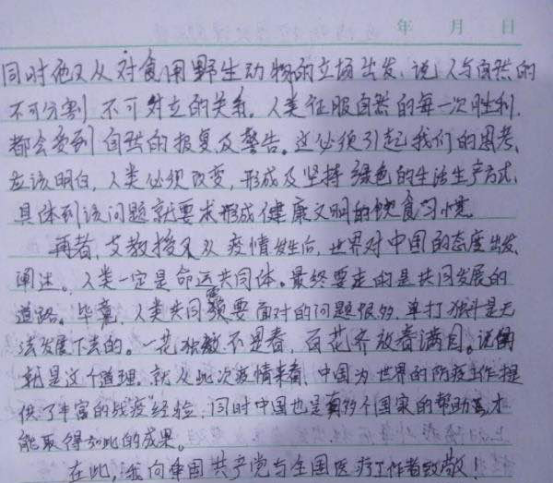 年 月 日
同时他又从对食用野生动物的立场出发，说人与自然的
不可分割，不可对立的关系。人类征服自然的每一次胜利，
都会受到自然的报复及警告。这必须引起我们的思考，
应该明白，人类必须改变，形成及坚持绿色的生活生产方式，
具体到该问题就要求形成健康文明的饮食习惯
再者，艾教授又从疫情发生后，世界对中国的态度出发，
阐述。人类一定是命运共同体。最终要走的是共同发展的
道路。毕竟，人类共同需要面对的问题很多，单打独斗是无
法发展下去的。一花独放不是春，百花齐放春满园。说的
就是这个道理。就从此次疫情来看，中国为世界的防疫工作提
供了丰富的"战疫"经验，同时中国也是有多个国家的帮助才
能取得如此的成果。
在此，我向中国共产党与全国医疗工作者致敬！